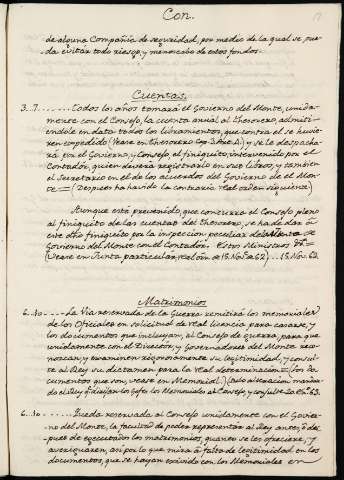 Con.
de alguna Compañia de seguridad, por medio de la qual se pue-
da evitar todo riesgo, y menoscabo de estos fondos.
Cuentas.
3..7....... Todos los años tomará el Govierno del Monte, unida-
mente con el Consejo, la cuenta anual al Thesorero, admiti-
endole en data todos los libramientos, que contra el se huvie-
ren expedido (Vease en Thesorero) y se le despacha-
rá por el Govierno, y Consejo, el finiquito, intervenido por el
Contador, quien deverá registrarlo en sus libros, y tambien
el Secretario en el de los acuerdos del Govierno de el Mon-
te = (Despues ha havido la contraria Real orden siguiente)
Aunque está prevenido, que concurra el Consejo pleno
al finiquito de las cuentas del Thesorero, se ha de dar á
este dho finiquito por la inspeccion peculiar del
Govierno del Monte con el Contador. Estos Ministros
(Vease en Junta particular real orn de 15. Nov.e de 62).... 15. Nov. 62.
Matrimonios
6..10..... La Via reservada de la Guerra remitirá los memoriales
de los Oficiales en solicitud de real licencia para casarse, y
los documentos que incluyan, al Consejo de guerra, para que
unidamente con el Director, y Governadores del Monte reco-
nozcan y examinen rigorosamente su legitimidad, y consul-
te al Rey su dictamen para la real determinacion = (Los do-
cumentos que son, vease en Memorial)
do el Rey
6..10..... Queda reservada al Consejo unidamente con el Govier-
no del Monte, la facultad de poder representar al Rey antes, ó des-
pues de executados los matrimonios, quanto se les ofreciere, y
averiguaren, asi por lo que mira á falta de legitimidad en los
documentos, que se hayan exivido con los Memoriales en